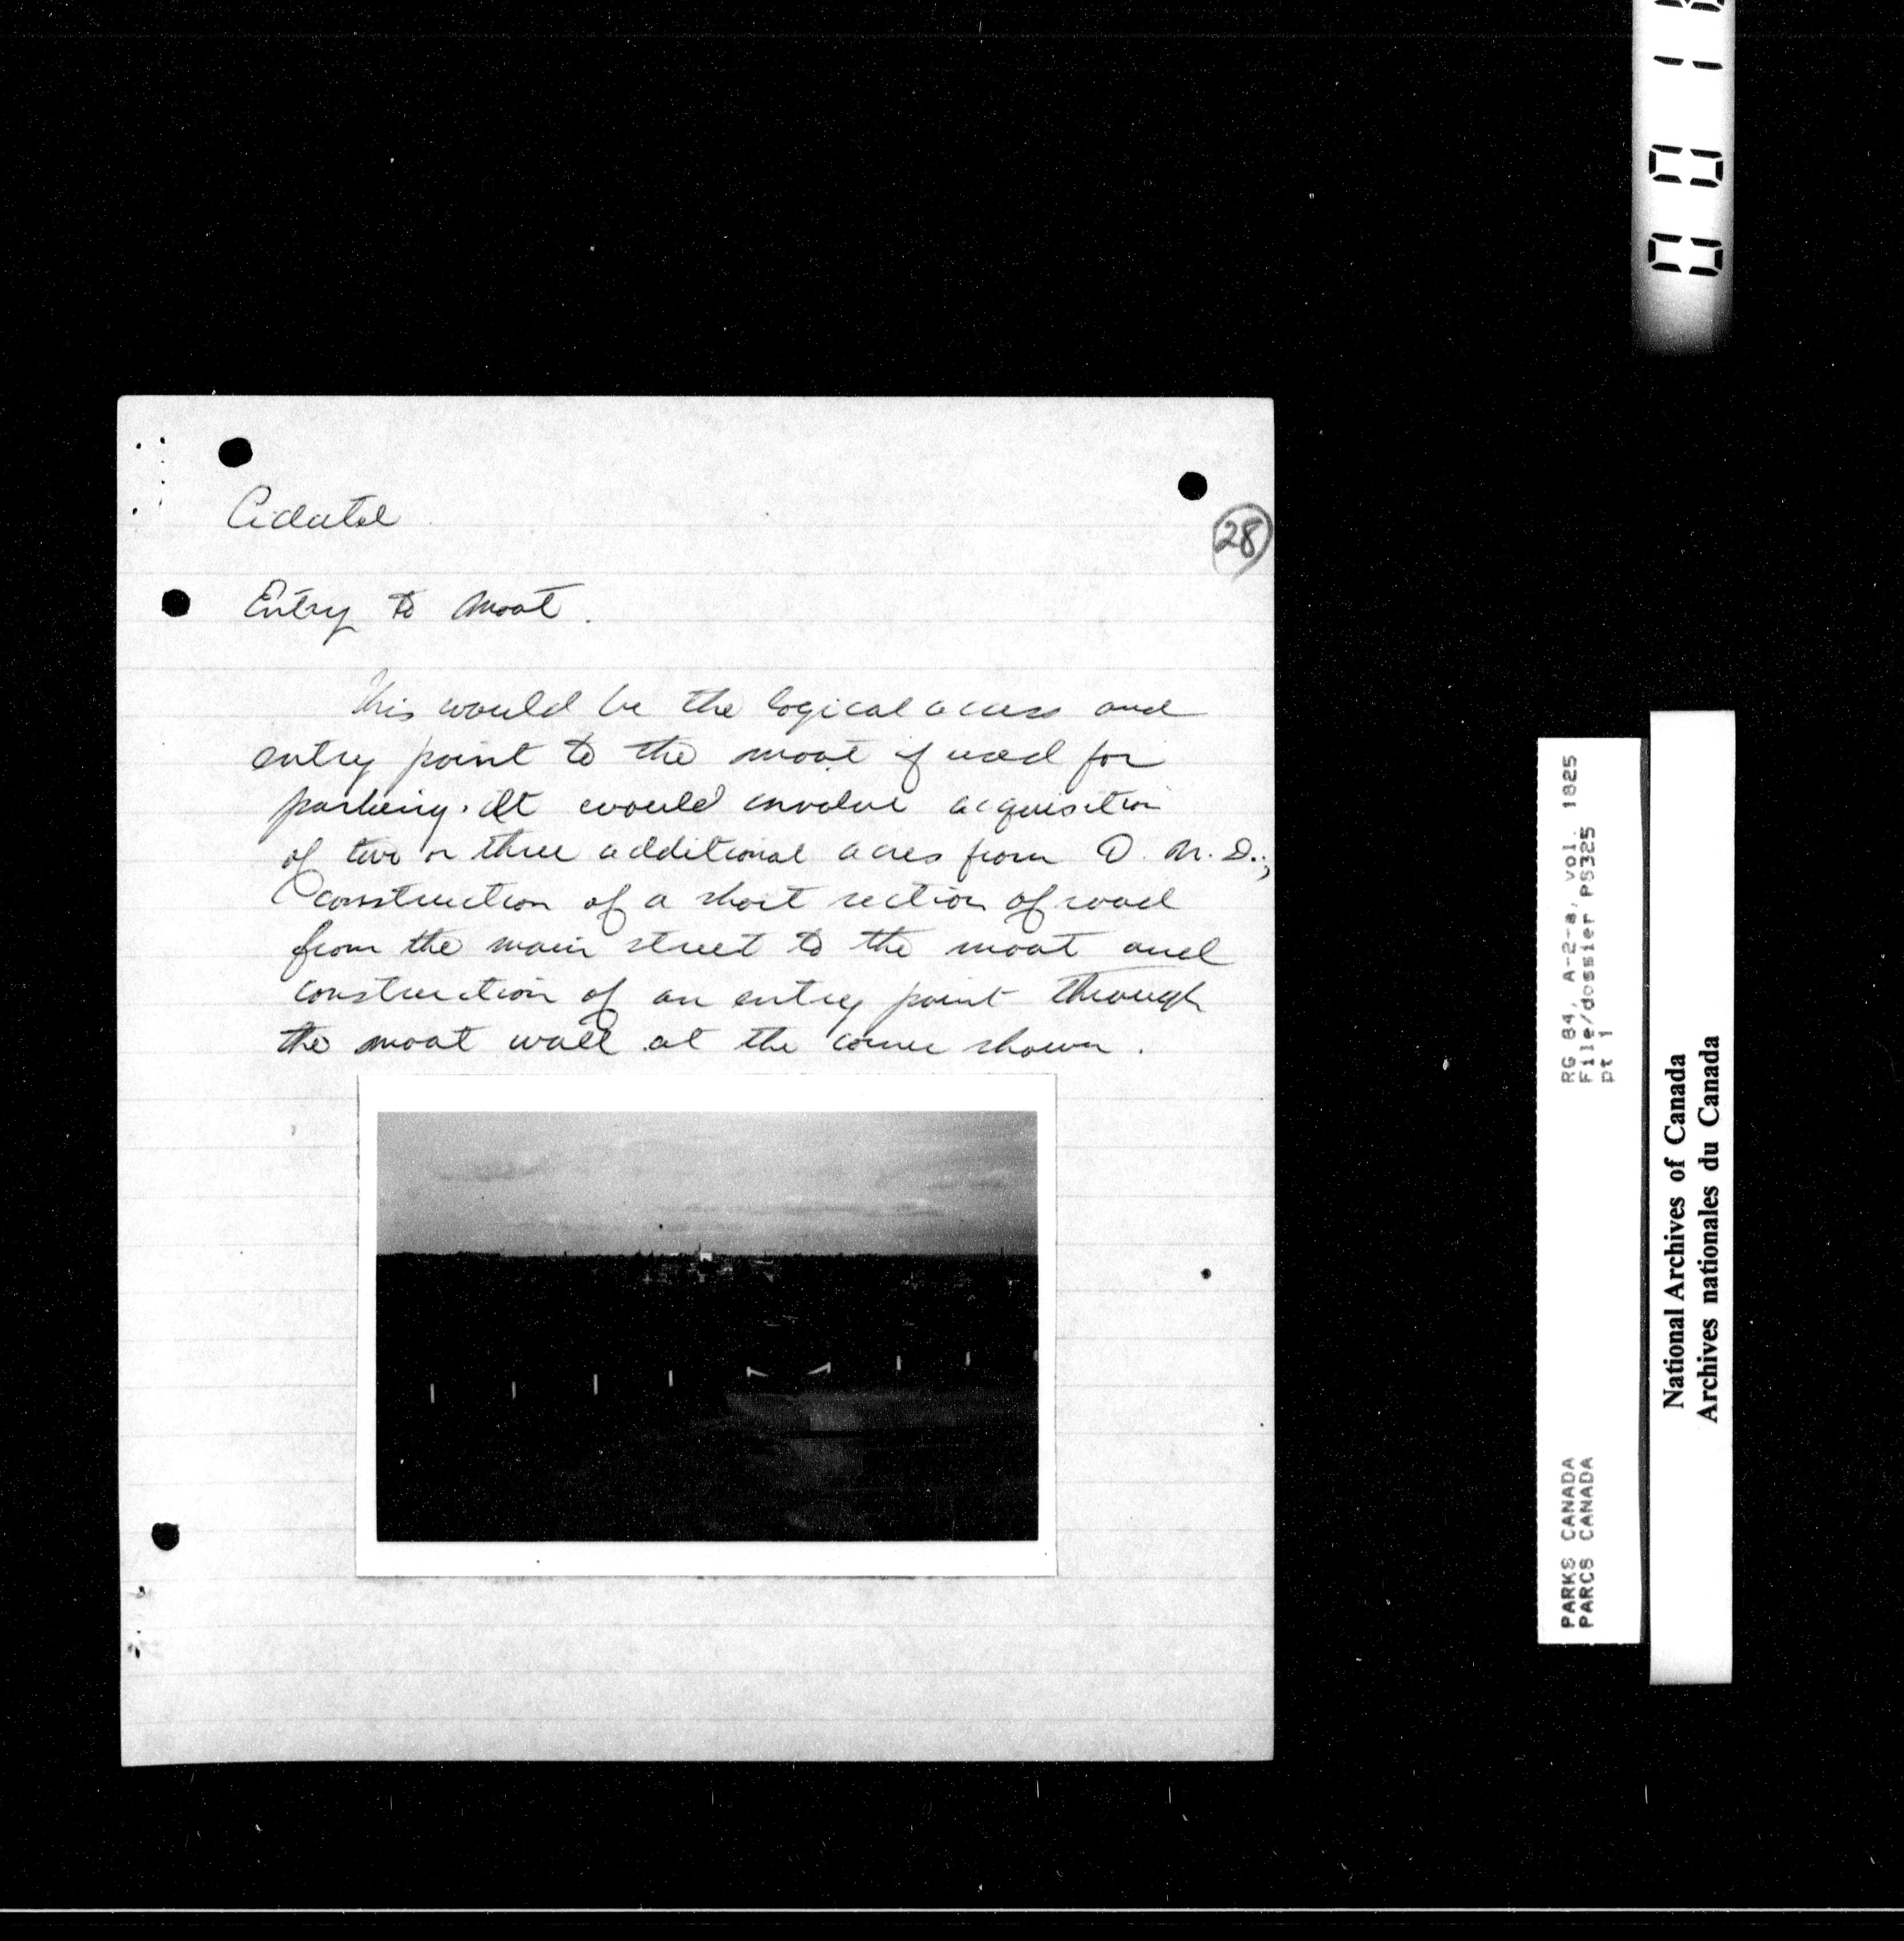 Citadel
28
Entry to moat.
This would be the logical access and
entry point to the moat if used for
parking. It would involve acquisition
of two or three additional acres from D.N.D.;
construction of a short section of road
from the main street to the moat and
construction of an entry point through
the moat wall at the corner shown.
RG 84, A-2-a, vol. 1825
File/dossier PS325
pt 1
PARKS CANADA
PARCS CANADA
National Archives of Canada
Archives nationales du Canada